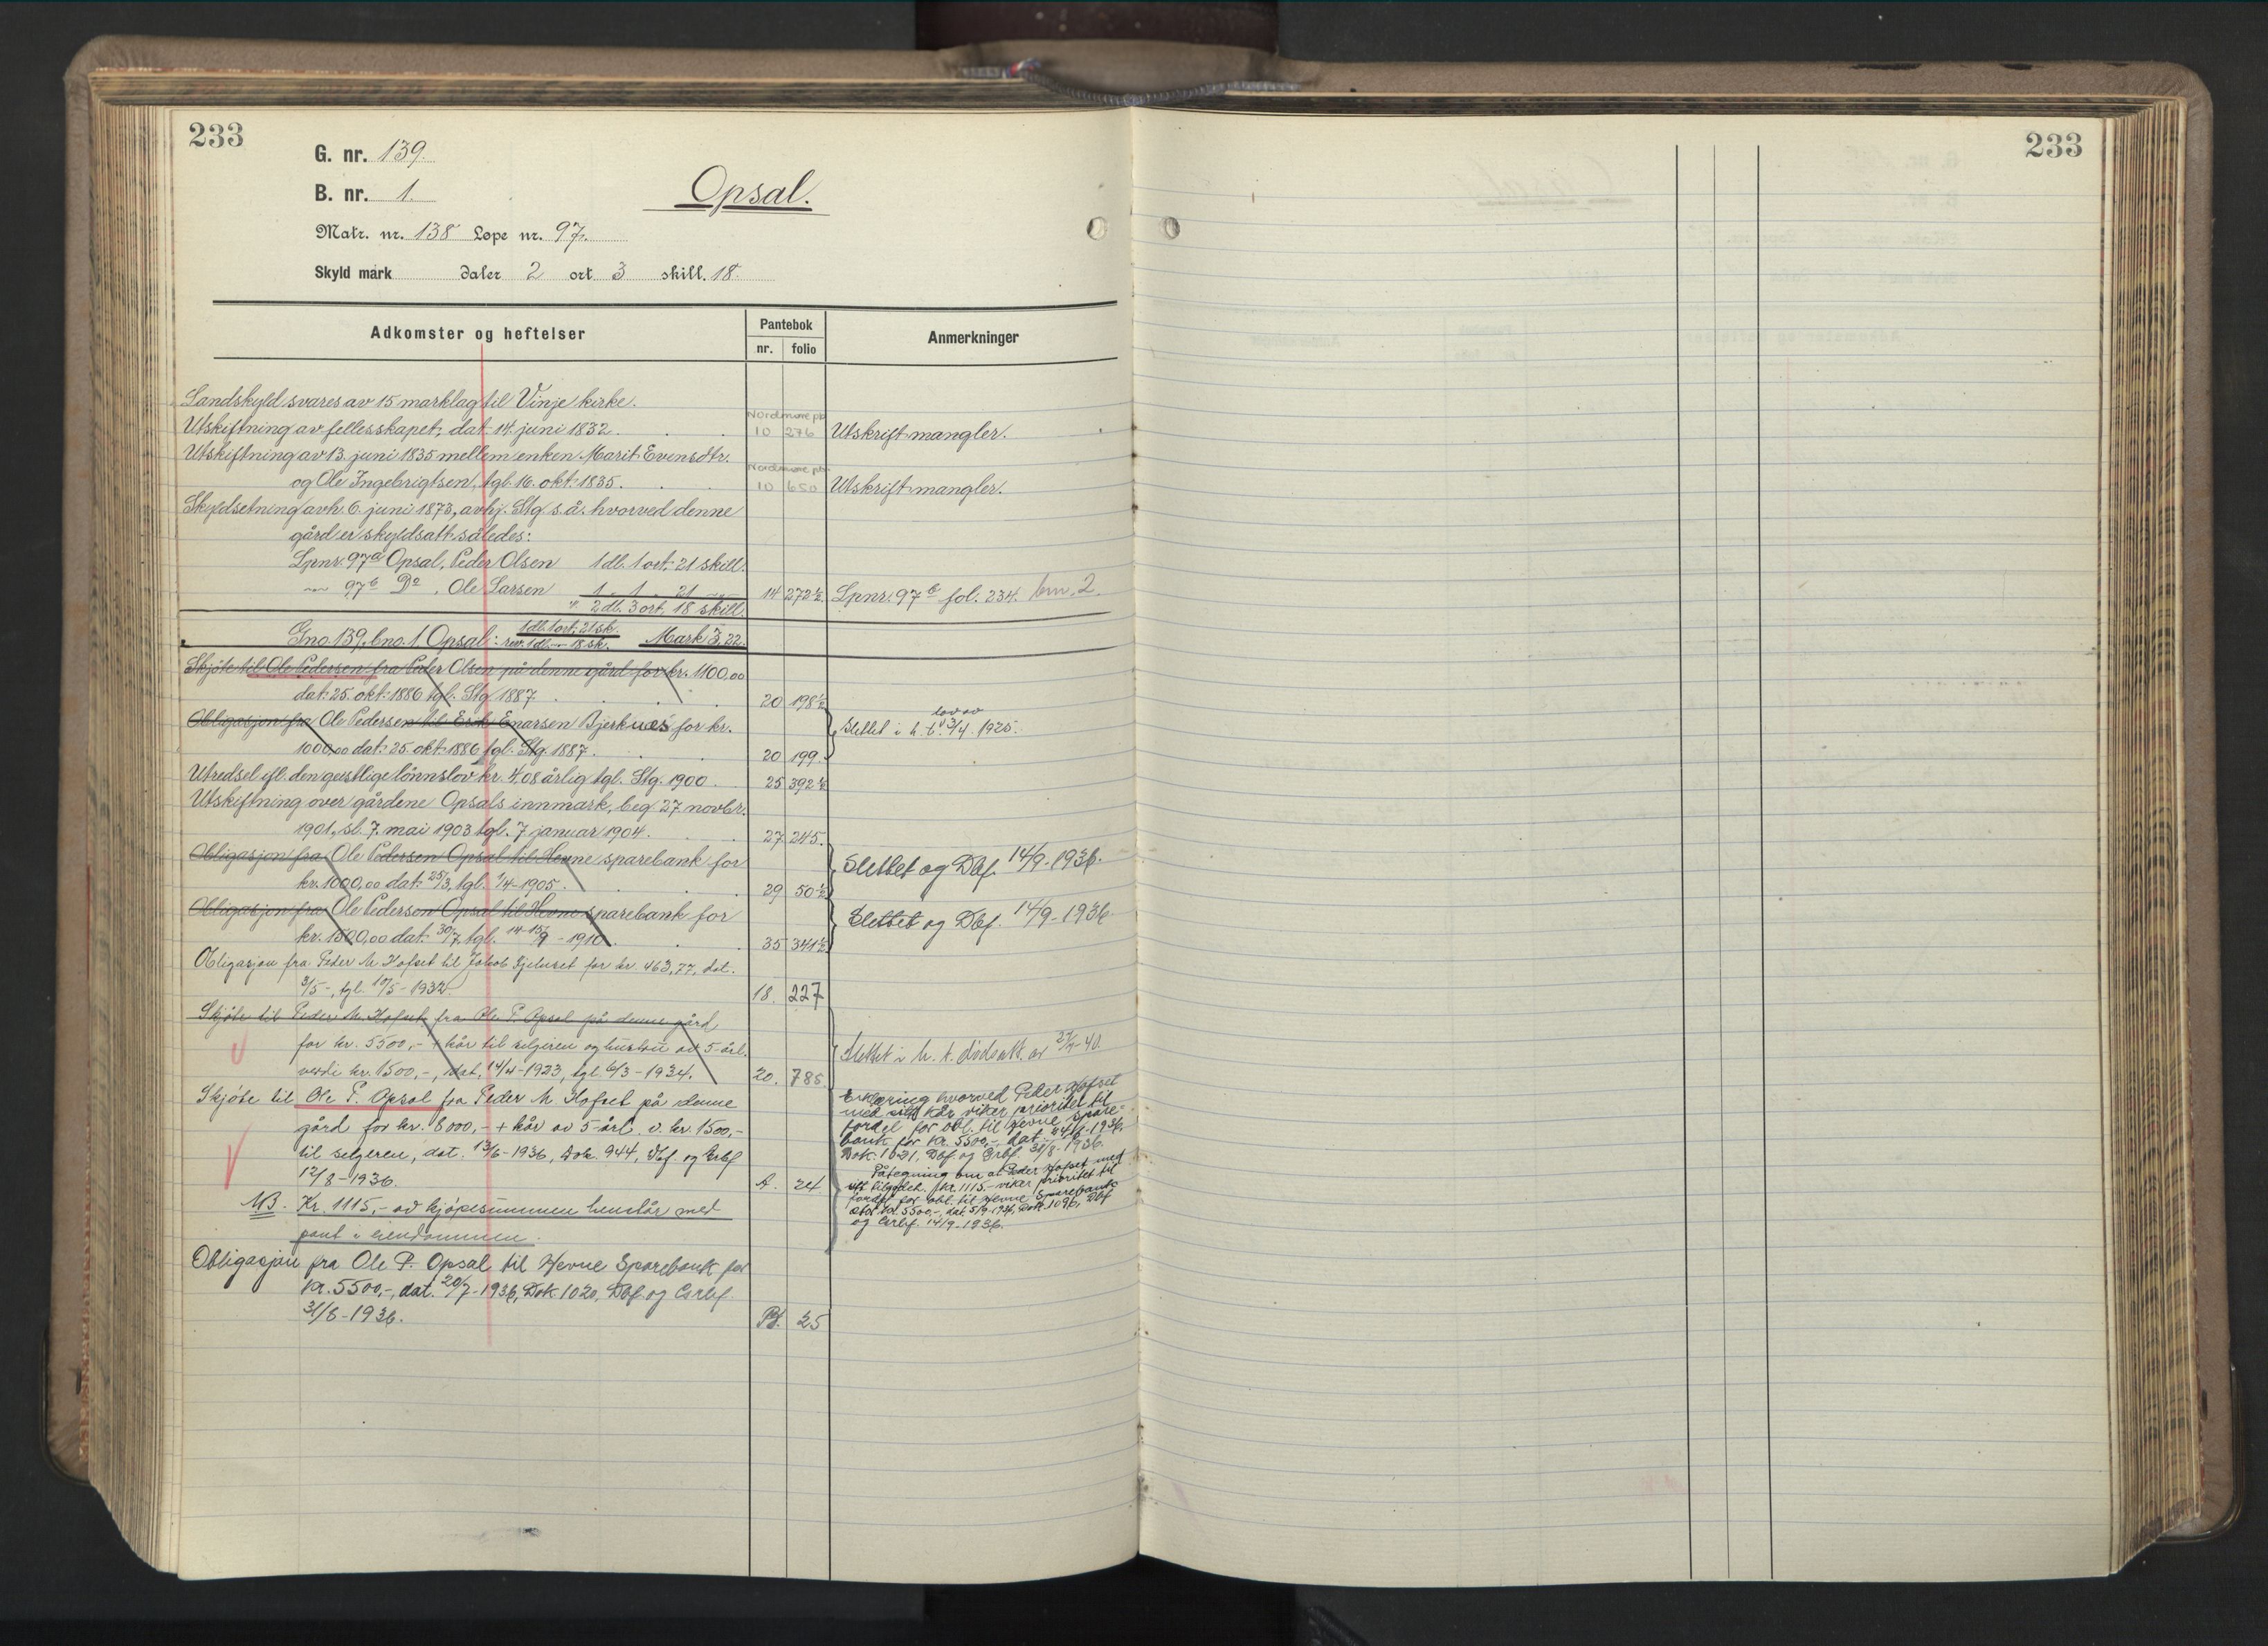 233
233
G. nr. 139.
B. nr. 1.
Opsal.
Matr. nr. 138 Løpe nr. 97.
Skyld mark daler 2 ort 3 skill. 18
Adkomster og heftelser
Pantebok
nr. folio
Anmerkninger
Landskyld svares av 15 marklag til Vinje kirke.
Utskiftning av fellesskapet, dat. 14. juni 1832. Nordmøre pb 10 276 Utskrift mangler.
Utskiftning av 13. juni 1835 mellem enken Marit Evensdtr.
og Ole Ingebrigtsen, tgl. 16. okt. 1835. Nordmøre pb 10 650 Utskrift mangler.
Skyldsetning avh. 6. juni 1873, avhj. Stg s.å. hvorved denne
gård er skyldsatt således:
Lpnr. 97a Opsal, Peder Olsen 1 dl. 1 ort. 21 skill.
97b Do , Ole Larsen 1 - 1 - 21 14 272½ Lpnr. 97b fol. 234. bnr. 2.
2 dl. 3 ort, 18 skill.
1 dl. 1 ort, 21 sk.
Gno 139, bno. 1 Opsal: rev. 1 dl. - 18 sk. Mark 3,22.
Skjøte til Ole Pedersen fra Peder Olsen på denne gård for kr. 1100,00
dat. 25. okt. 1886 tgl. Stg 1887. 20 198½
Obligasjon fra Ole Pedersen til Erik Enarsen Bjerknæs for kr.
1000,00 dat. 25. okt. 1886 tgl. Stg. 1887. 20 199.
Slettet i h. t. 1925.
Utredsel efl. den geistlige lønnslov kr. 4,08 årlig tgl. Stg. 1900. 25 392½
Utskiftning over gårdene Opsals innmark, beg. 27 novbr.
1901, sl. 7. mai 1903 tgl. 7 januar 1904. 27 245.
Obligasjon fra Ole Pedersen Opsal til Hevne sparebank for
kr. 1000,00 dat. 25/3, tgl. 1/4-1905. 29 50½
Slettet og Dbf. 14/9-1936.
Obligasjon fra Ole Pedersen Opsal til Hevne sparebank for
kr. 1500,00 dat. 30/7, tgl. 14-15/9-1910. 35 341½
Slettet og Dbf. 14/9-1936
Obligasjon fra Peder M. Hofset til Jakob for kr. 463,77, dat.
3/5-, tgl. 10/5-1932. 18. 227
Skjøte til Peder M. Hofset fra Ole P. Opsal på denne gård
for kr. 5500,- + kår til selgeren og hustru av 5-årl.
verdi kr. 1500,-, dat. 14/4-1923, tgl 6/3-1934. 20. 785.
Slettet i h. t. dødsatt. av -40.
Skjøte til Ole P. Opsal fra Peder M. Hofset på denne
gård for kr. 8000,- + kår av 5 årl. v. kr. 1500,-
til selgeren, dat. 13/6-1936, Dok. 944, Dbf. og Grbf
12/8-1936. A. 24
NB. Kr. 1115,- av kjøpesummen henstår med
pant i eiendommen.
Erklæring hvorved Peder Hofset
med sitt kår viker prioritet til
fordel for obl. til Hevne Spare-
bank for kr. 5500,-, dat. 24/8-1936.
Dok. 1021. Dbf. og Grbf. 31/8-1936.
Påtegning om at Peder Hofset med
sitt tilgodeh. kr. 1115,- viker prioritet til
fordel for obl. til Hevne Sparebank
stor kr. 5500,-, dat. 5/9-1936, Dok. 1096, Dbf
og Grbf. 14/9-1936.
Obligasjon fra Ole P. Opsal til Hevne Sparebank for
kr. 5500,-, dat. 20/7-1936, Dok. 1020, Dbf. og Grbf.
31/8-1936. 25